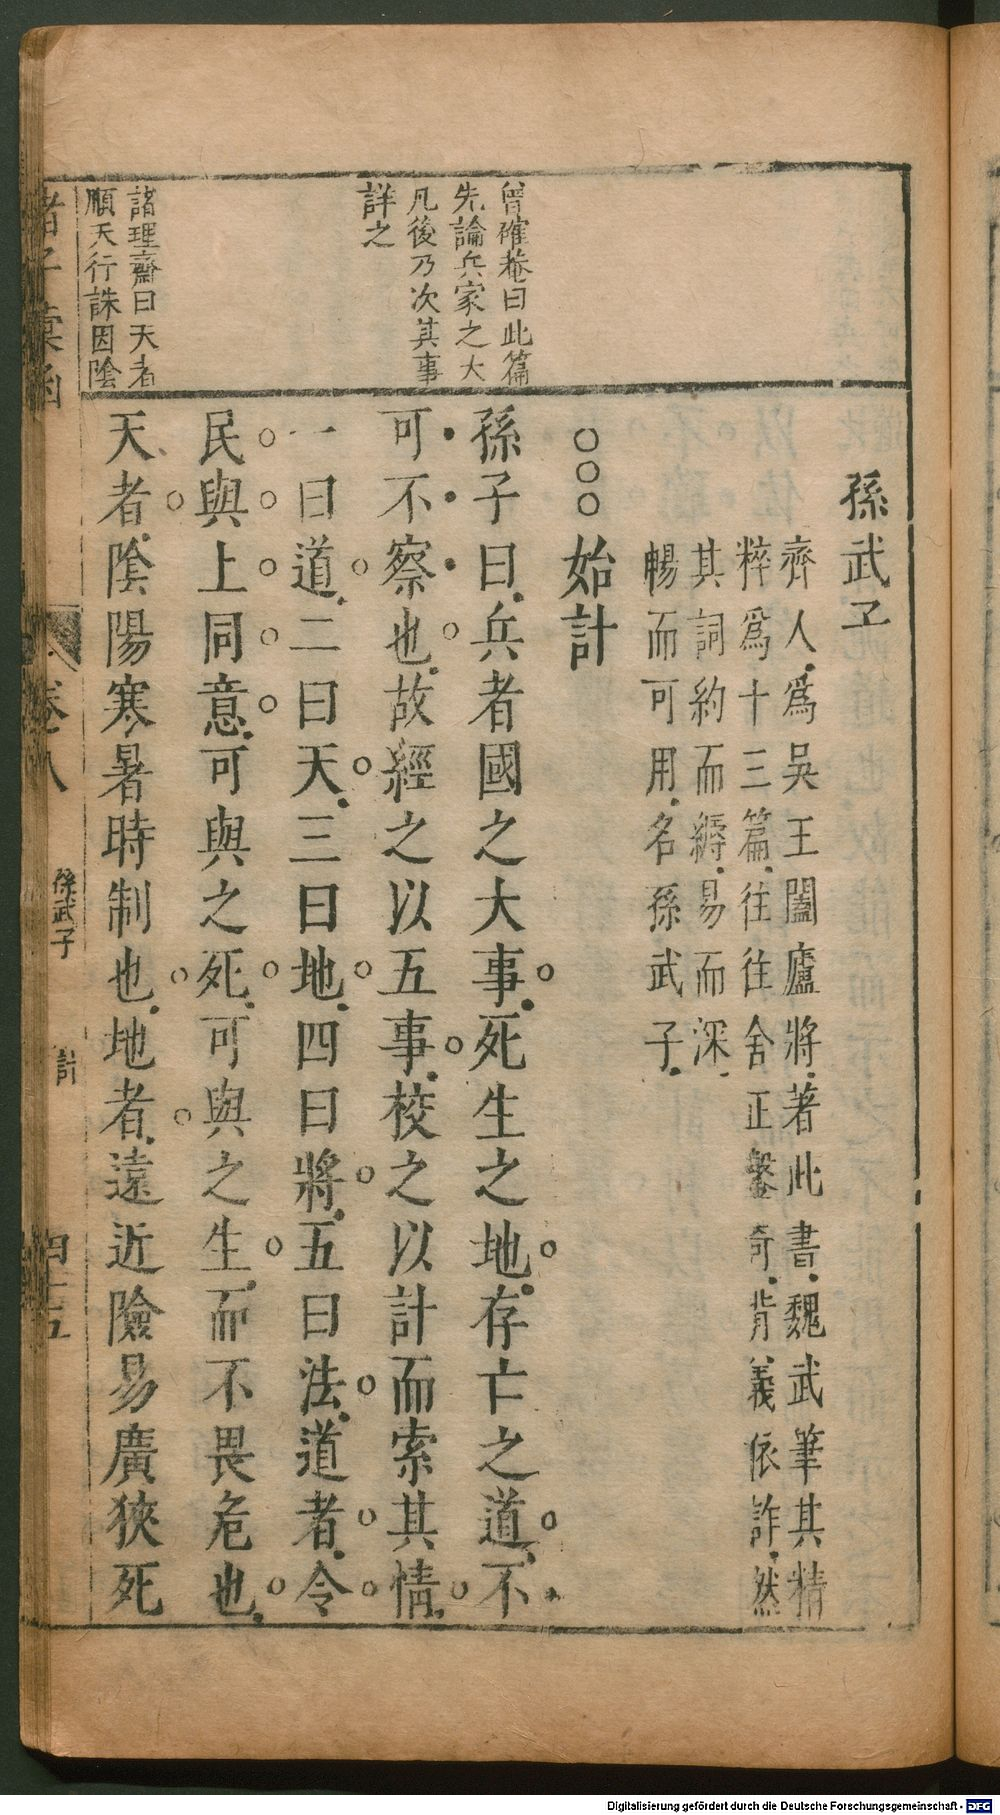 孫武子
齊人爲吳王闔廬將著此書魏武筆其精
粹爲十三篇往往舍正鑿奇背義依詐然
其詞約而縟易而深
暢而可用名孫武子
○○○始計
孫子曰兵者國之大事死生之地存亡之道不
可不察也故經之以五事校之以計而索其情
一曰道二曰天三曰地四曰將五曰法道者令
民與上同意可與之死可與之生而不畏危也
天者陰陽寒暑時制也地者遠近險易廣狹死
曾確菴曰此篇
先論兵家之大
凡後乃次其事
詳之
諸理齋曰天者
順天行誅因陰
諸子彙函
卷八
孫武子
計
四十五
Digitalisierung gefördert durch die Deutsche Forschungsgemeinschaft - DFG